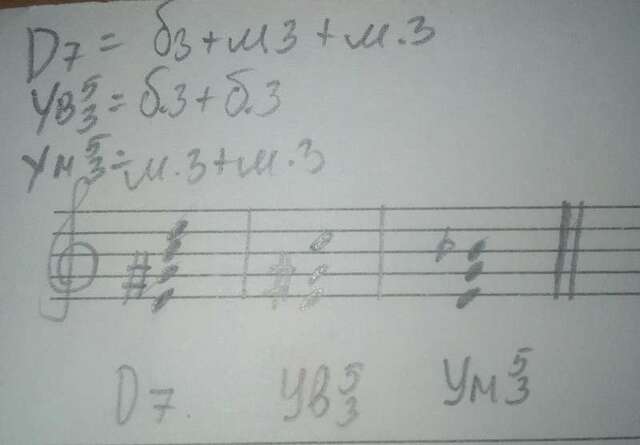 D7 = б3+м3+м.3
Ув 5/3 = б.3+б.3
Ум 5/3 = м.3+м.3
D7. Ув 5/3 Ум 5/3